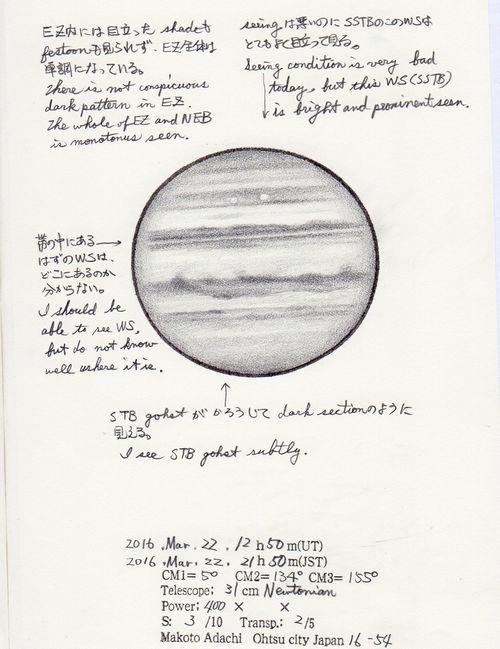 EZ内には目立った shadeも
festoonも見られず、EZ全体は
単調になっている。
There is not conspicuous
dark pattern in EZ.
The whole of EZ and NEB
is monotonus seen.
seeingは悪いのに SSTBのこのWSは
とてもよく目立って見る。
Seeing condition is very bad
today, but this WS(SSTB)
is bright and prominent seen.
帯の中にある
はずのWSは、
どこにあるのか
分からない。
I should be
able to see WS,
but do not know
well where it is.
STB gohstがかろうじて dark sectionのように
見える。
I see STB gohst subtly.
2016 .Mar. 22 . 12 h 50 m(UT)
2016 .Mar. 22 . 21 h 50 m(JST)
CM1= 5° CM2= 134° CM3= 155°
Telescope; 31 cm Newtonian
Power; 400 × ×
S: 3 /10 Transp.: 2/5
Makoto Adachi Ohtsu city Japan 16-54